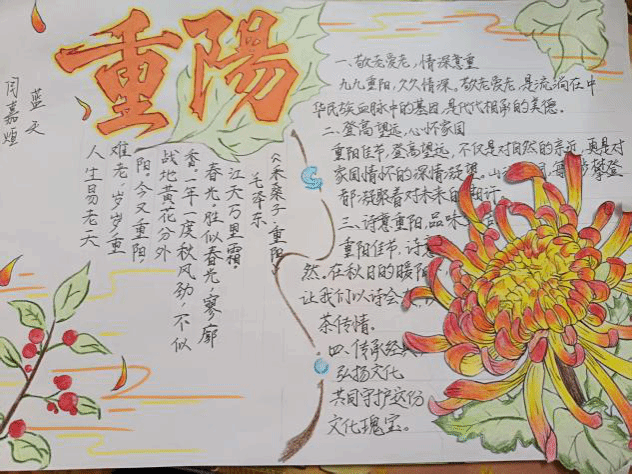 重陽
蓝天
闫嘉烜
采桑子·重阳
毛泽东
人生易老天
难老,岁岁重
阳。今又重阳,
战地黄花分外
香。一年一度秋风劲,不似
春光。胜似春光,寥廓
江天万里霜
一、敬老爱老,情深意重
九九重阳,久久情深。敬老爱老,是流淌在中
华民族血脉中的基因,是代代相承的美德。
二、登高望远,心怀家国
重阳佳节,登高望远,不仅是对自然的亲近,更是对
家国情怀的深情凝望。山
攀登
都凝聚着对未来的期许。
三、诗意重阳,品味
重阳佳节,诗意
然。在秋日的暖阳
让我们以诗会
茶传情。
四、传承经典
弘扬文化
共同守护这份
文化瑰宝。